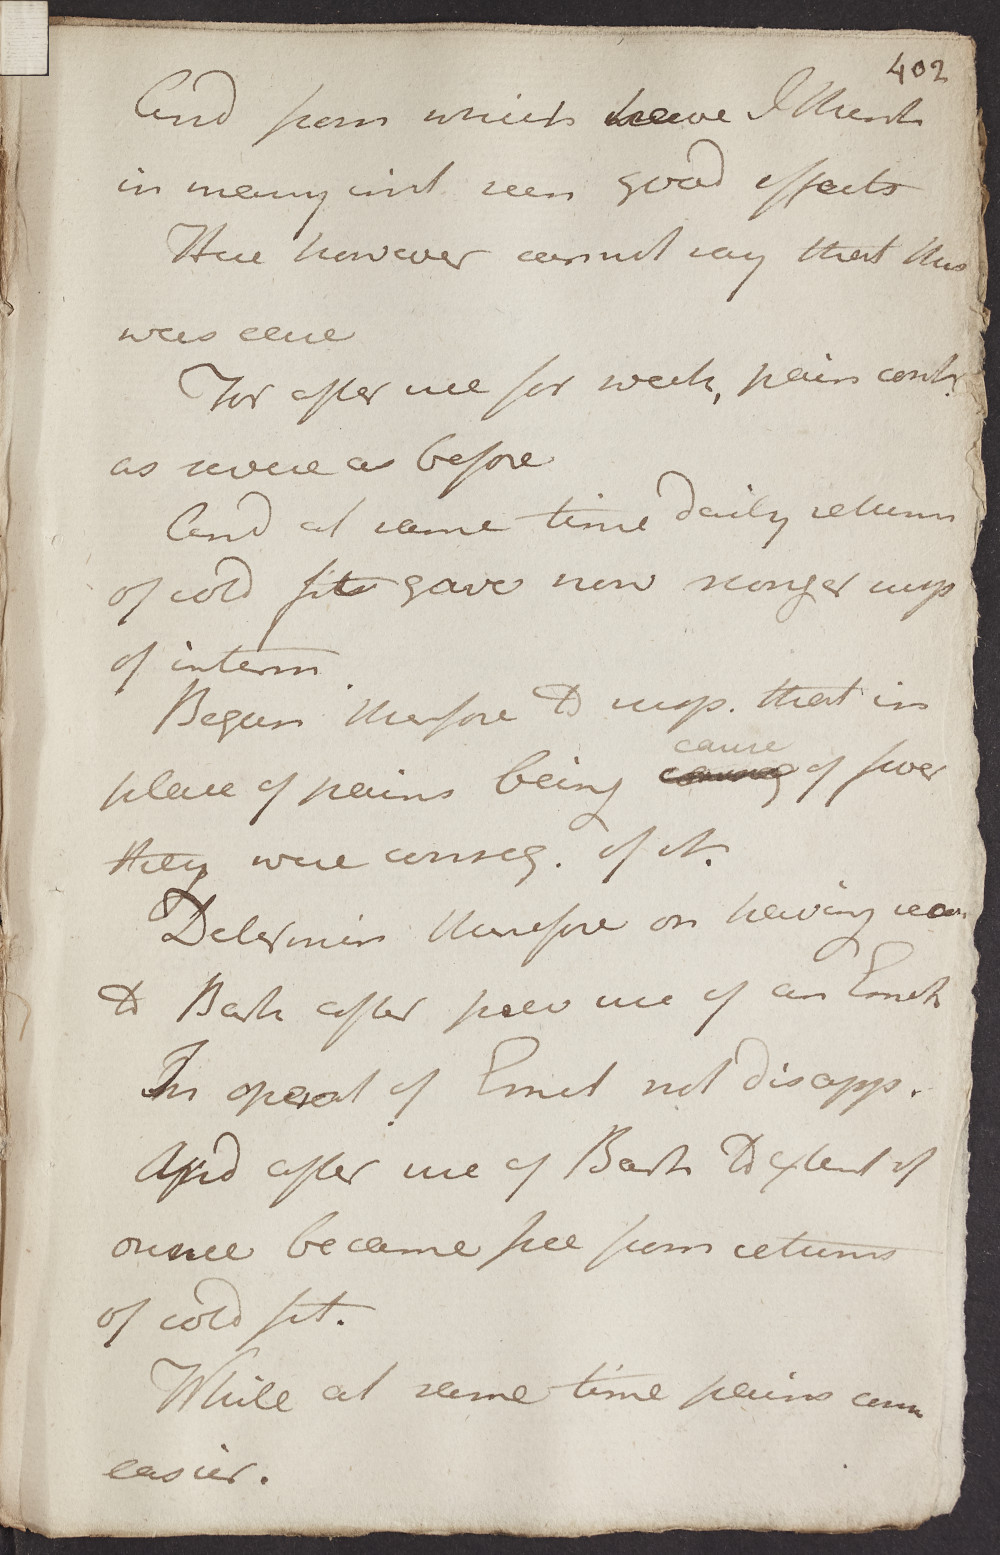 402
And from which have I think
in many inst seen good effects
Here however cannot say that this
was case
For after use for week, pain cont.
as severe as before
And at same time daily return
of cold fits gave now stronger susp
of interm.
Begun therefore to susp. that in
place of pains being cause of fever
they were conseq. of it.
Determin therefore on having recour
to Bark after prev use of an Emet
In operat of Emet not disapp.
And after use of Bark to extent of
ounce became free from returns
of cold fit.
While at same time pains
easier.